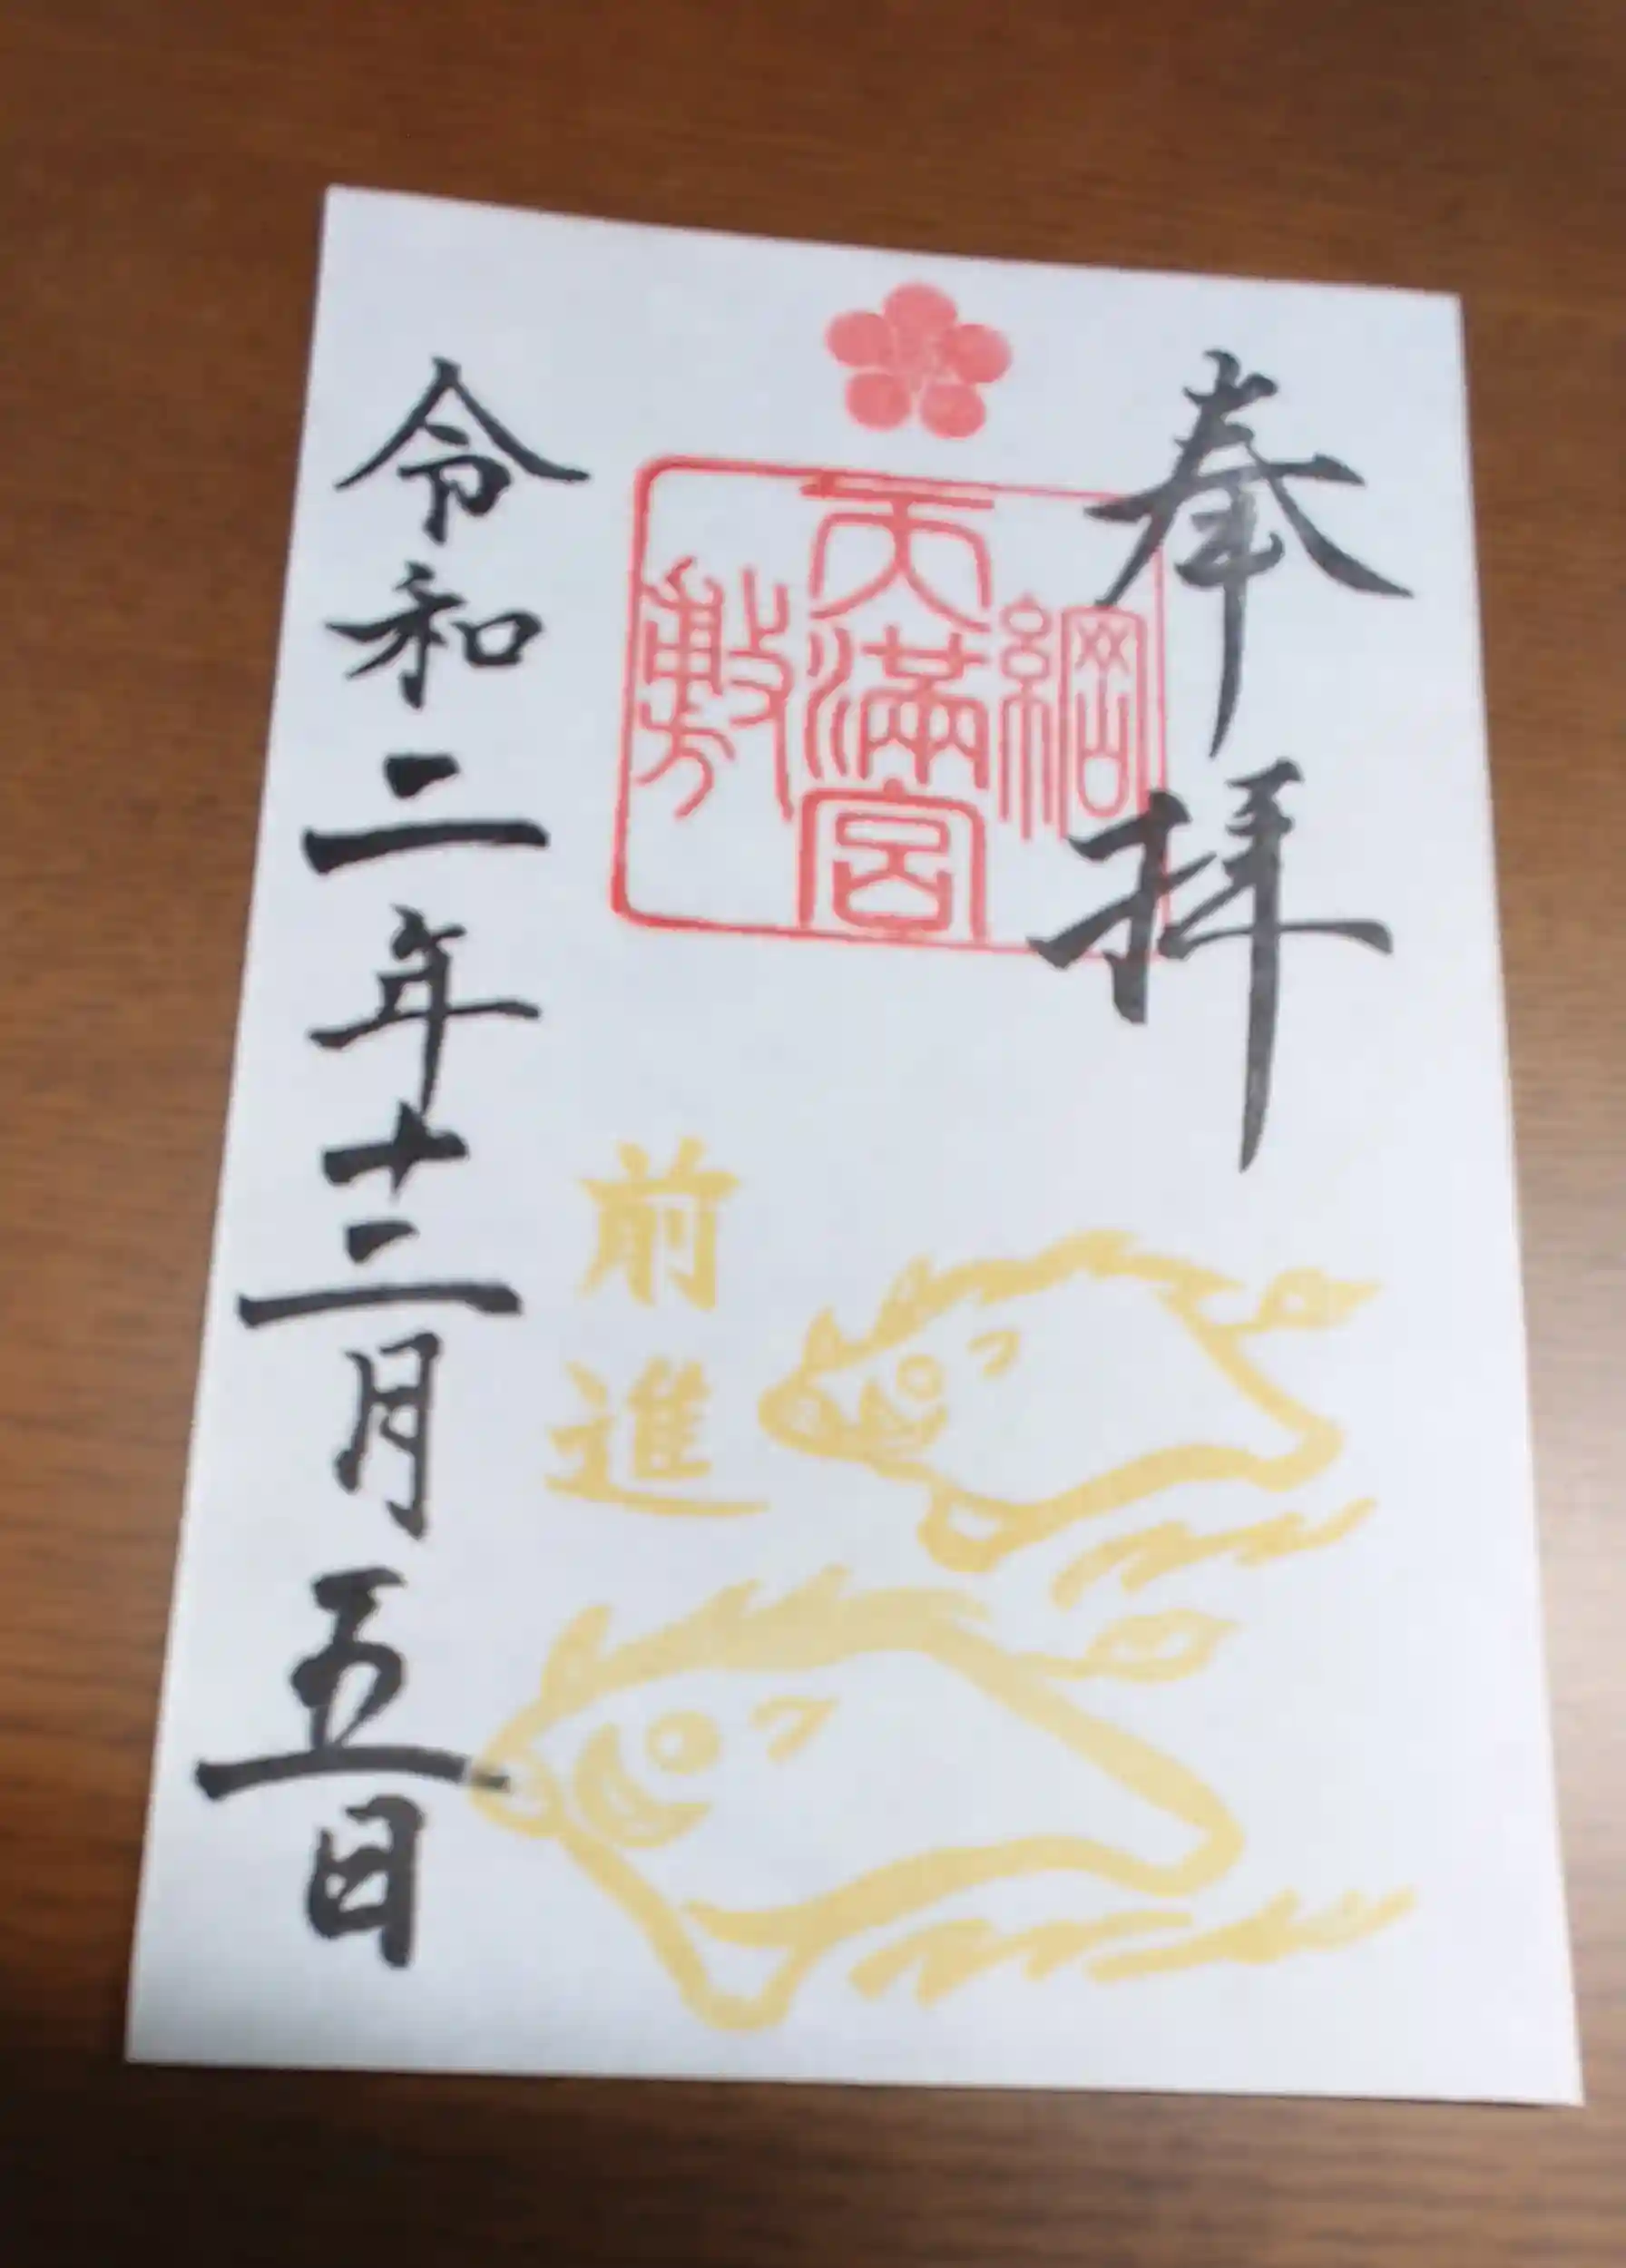 奉拝
綱
天満宮
敷
前進
令和二年十二月五日